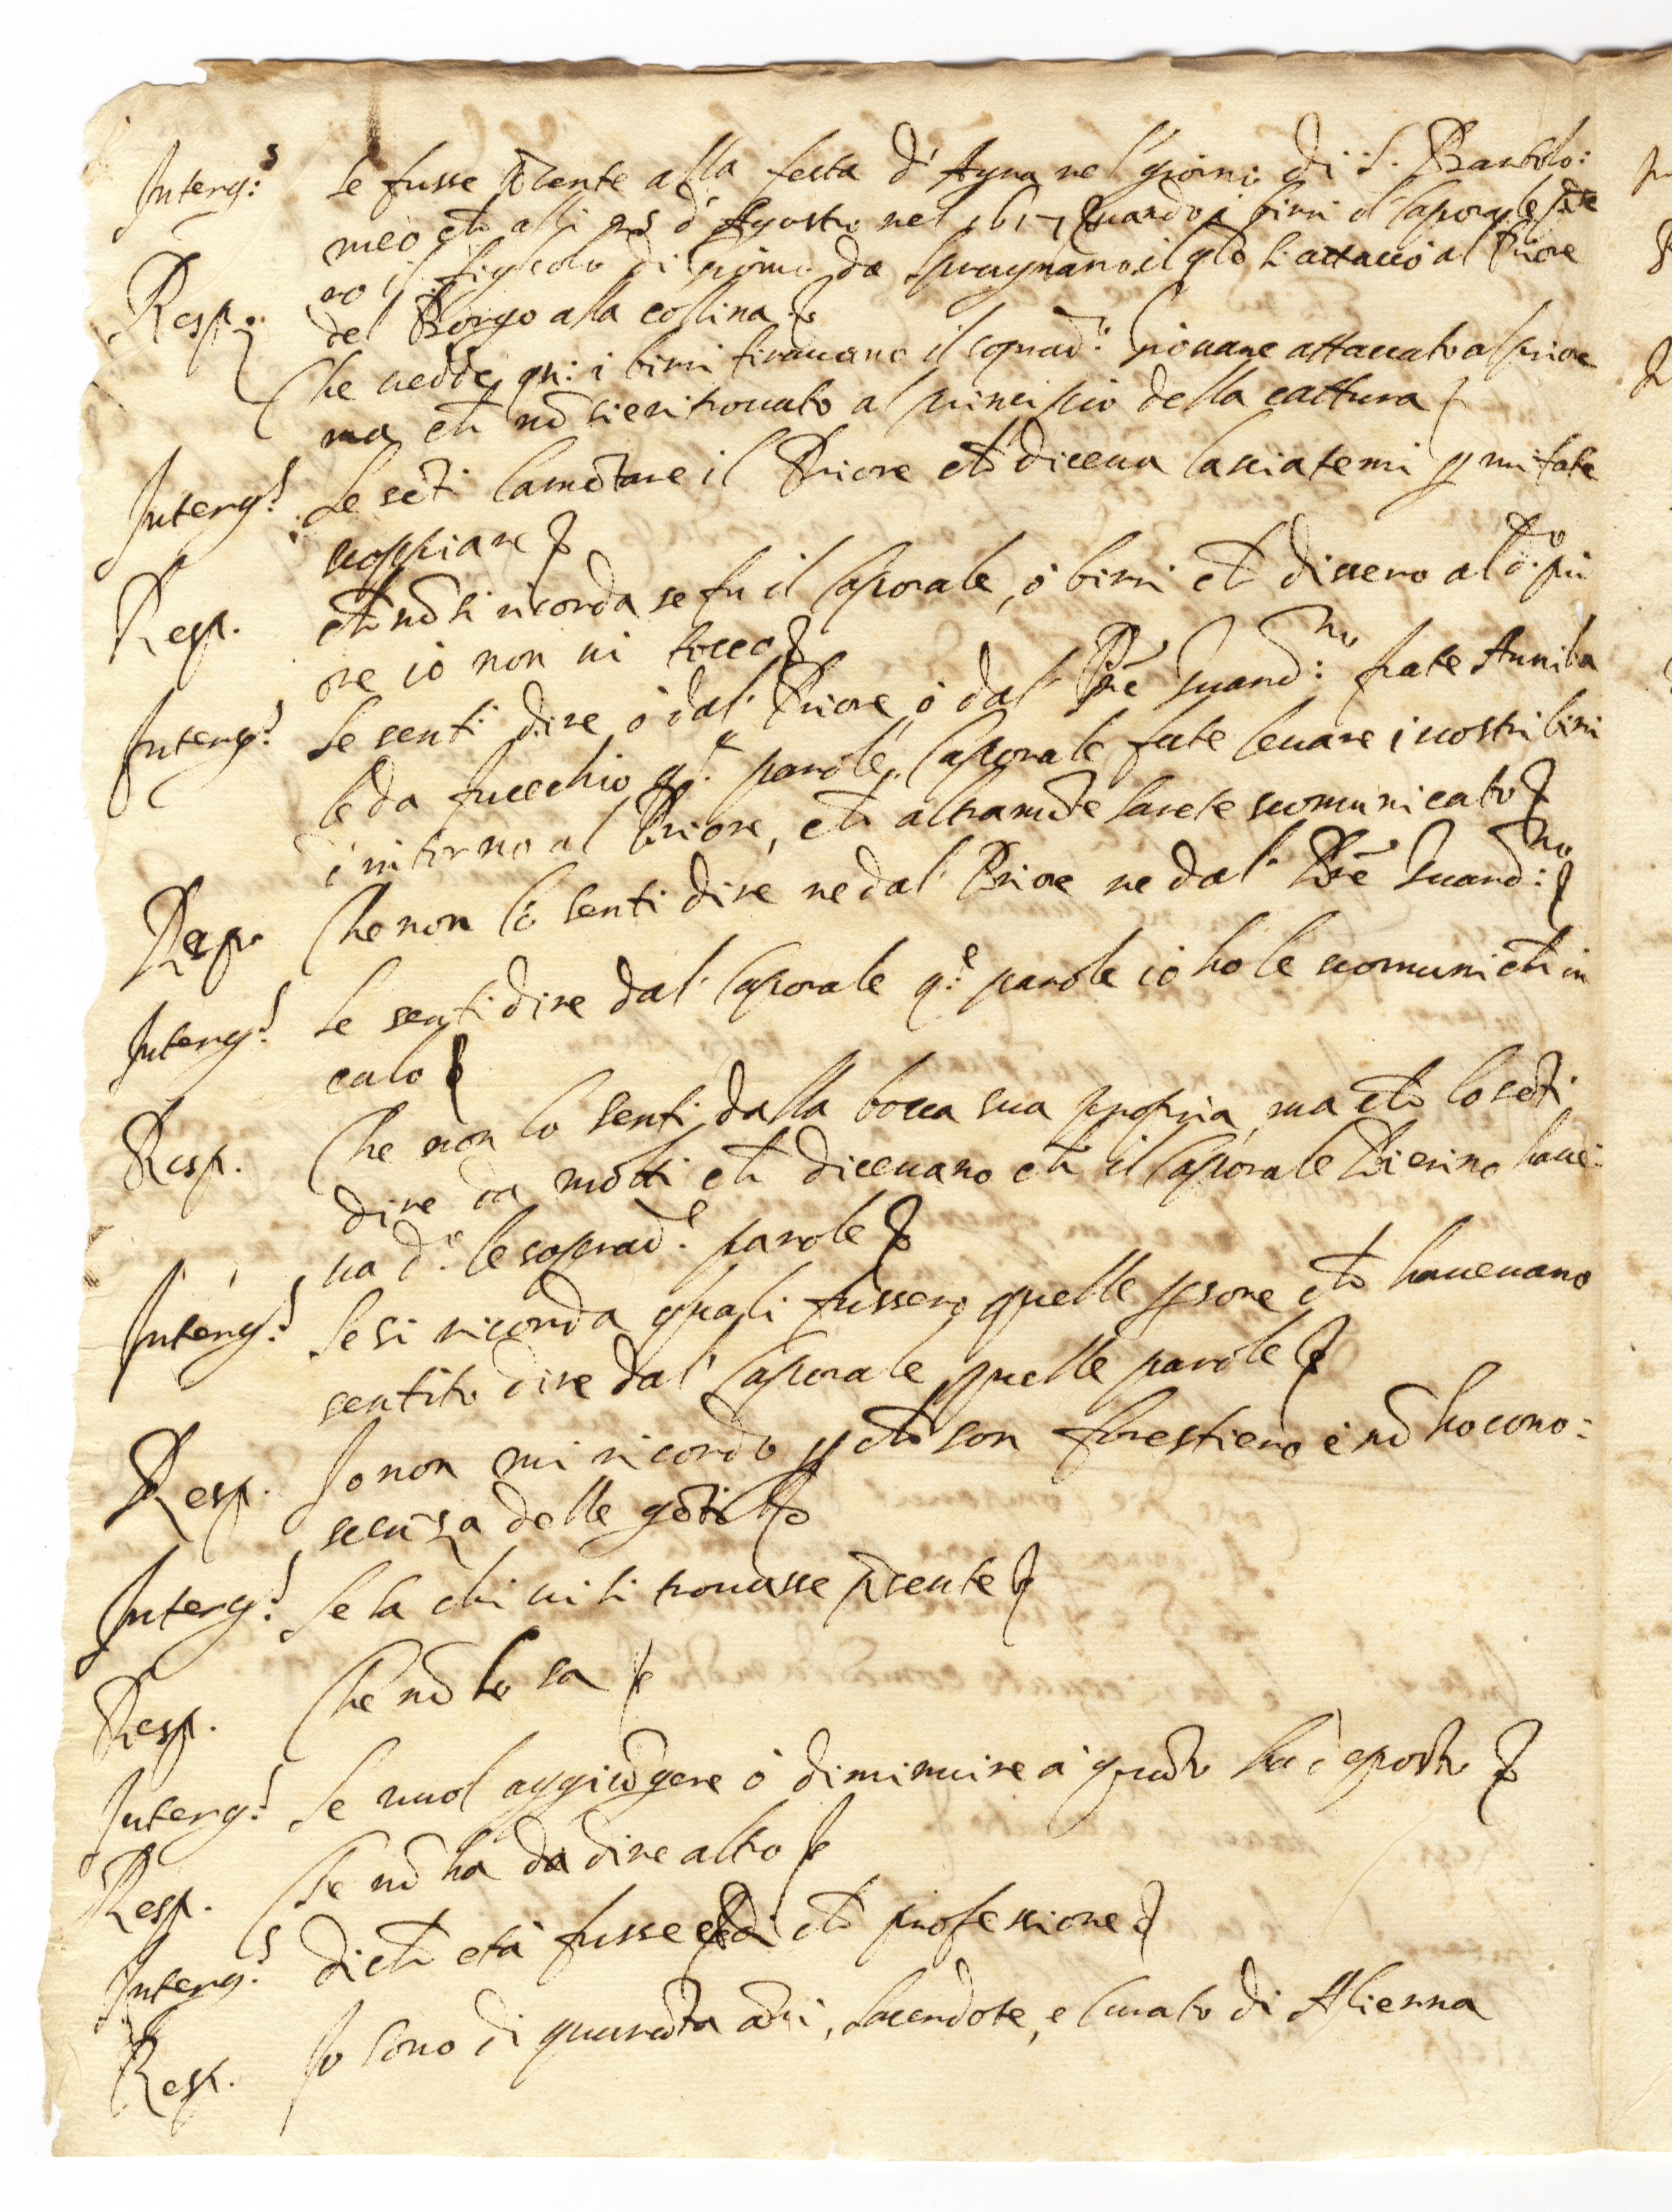 Interg:s Se fusse p̃sente alla festa d'Agna nel giorno di S. Bartolo:
meo ch̃ alli 25 d'Agosto nel 1617 quando i birri el Caporale
ro il figliolo di da il q̃le si attaccò al Priore
Resp. del Borgo alla collina
Che vedde qn: i birri tiravano il soprad:o giovane attaccato al priore
ma ch̃ nõ si è ritrovato al principio della cattura
Interg:s Se sẽti lamẽtare il Priore ch̃ diceva lasciatemi ꝑ mi fate
scoppiare
Resp. ch̃ nõ si ricorda se fu il Caporale, ò birri ch̃ dissero al d:o pri
ore io non vi tocco
Interg:s Se senti dire ò dal Priore ò dal Prẽ Guard:no frate Anniba
le da fucechio q:e parole, Caporale fate levare i vostri birri
d'intorno al Priore, ch̃ altramẽte sarete scomunicato
Resp. Che non lo senti dire ne dal Priore ne dal Prẽ Guard:no
Interg:s Se senti dire dal Caporale q:e parole io ho le scomunich̃ in
culo
Resp. Che non lo senti dalla bocca sua propria, ma ch̃ lo sẽti
dire da molti ch̃ dicevano ch̃ il Caporale Pierino have:
va d:e le soprad:e parole
Interg:s Se si ricorda quali fussero quelle ꝑsone ch̃ havevano
sentito dire dal Caporale quelle parole
Resp. Io non mi ricordo ꝑch̃ son forestiero é nõ ho cono:
scẽnza delle gẽti
Interg:s Se sa chi vi si trovasse p̃sente
Resp. Che nõ lo sa
Interg:s Se vuol aggiũgere ò diminuire à quãto ha deposto
Resp. Che nõ ha da dire altro
Interg:s Di ch̃ età fusse e di ch̃ professione
Resp. Io sono di quarãta ãni, Sacerdote, e Curato di